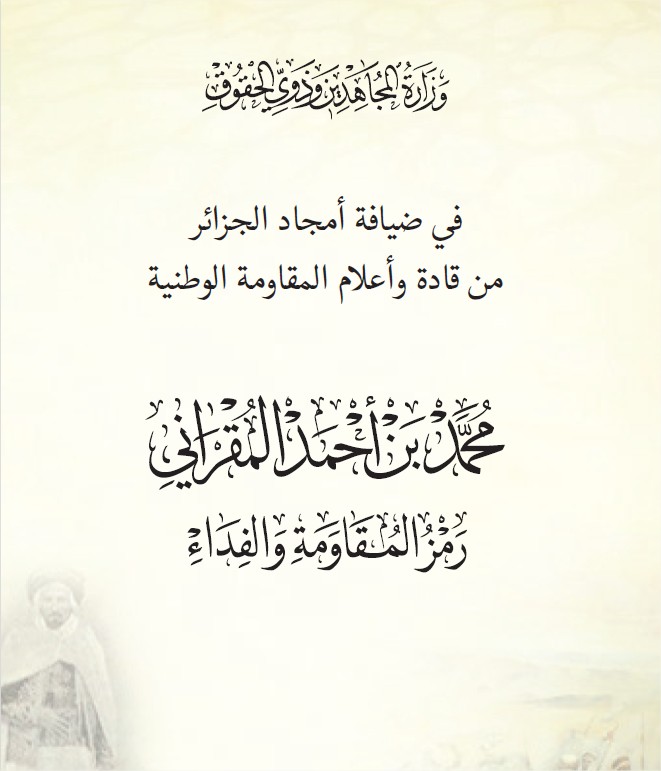 وَزَارَةُ المُجَاهِدِينَ وَذَوِي الحُقُوقِ
في ضيافة أمجاد الجزائر
من قادة وأعلام المقاومة الوطنية
مُحَمَّدْ بَنْ أَحْمَدْ المُقْرَانِي
رَمْزُ المُقَاوَمَةِ وَالفِدَاءِ